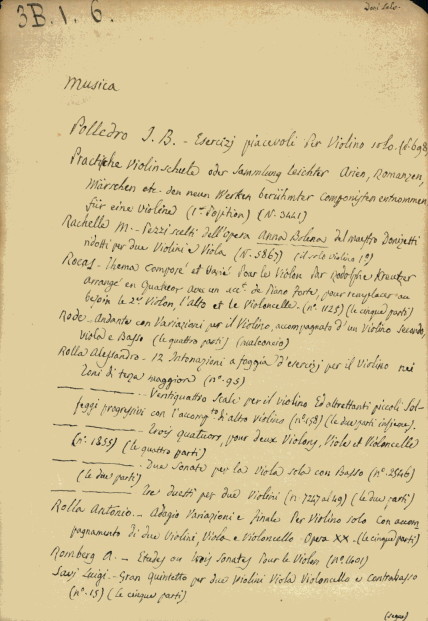 3B.1.6.
Musica
Polledro J. B. - Esercizj piacevoli Per Violino solo. (N. 698)
Practische Violinschule oder Sammlung leichter Arien, Romanzen,
Märschen etc. den neuen Werken berühmter Componisten entnommen
für eine Violine (1ª Position) (N. 3421)
Rachelle M. - Pezzi scelti dell'Opera Anna Bolena del maestro Donizetti
ridotti per due Violini e Viola (N. 5867) (il solo violino 1º)
Rocas. - Thema Composé et Varié Pour le Violon Par Rodolphe Kreutzer
arrangé en Quatuor avec un acc.t de Piano forte, pour remplacer au
besoin le 2.d Violon, l'alto et le Violoncelle. (nº 1125) (le cinque parti)
Rode. Andante con Variazioni per il Violino, accompagnato d'un Violino secondo,
Viola e Basso (le quattro parti) (malconcio)
Rolla Alessandro. - 12 Intonazioni a foggia d'esercizj per il Violino nei
Toni di terza maggiore (nº 95)
Ventiquattro Scale per il Violino Ed altrettanti piccoli Sol-
feggi progressivi con l'accomp.to d'altro violino (nº 158) (le due parti insieme).
Trois quatuors, pour deux Violons, Viole et Violoncelle
(nº 1855) (le quattro parti)
Due Sonate per la Viola sola con Basso (nº 2546)
(le due parti)
Tre duetti per due Violini (n. 7247 al 49) (le due parti)
Rolla Antonio. - Adagio Variazioni e finale Per Violino solo con accom-
pagnamento di due Violini, Viola e Violoncello - Opera XX - (le cinque parti)
Romberg A. - Etudes ou trois Sonates Pour le Violon (nº 1401)
Savj Luigi. - Gran Quintetto per due Violini Viola Violoncello e Contrabasso
(nº 15) (le cinque parti)
(segue)